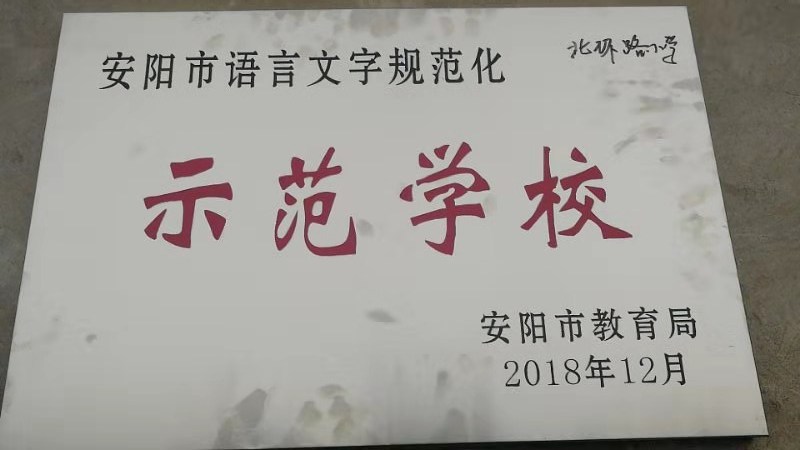 北环路小学
安阳市语言文字规范化
示范学校
安阳市教育局
2018年12月